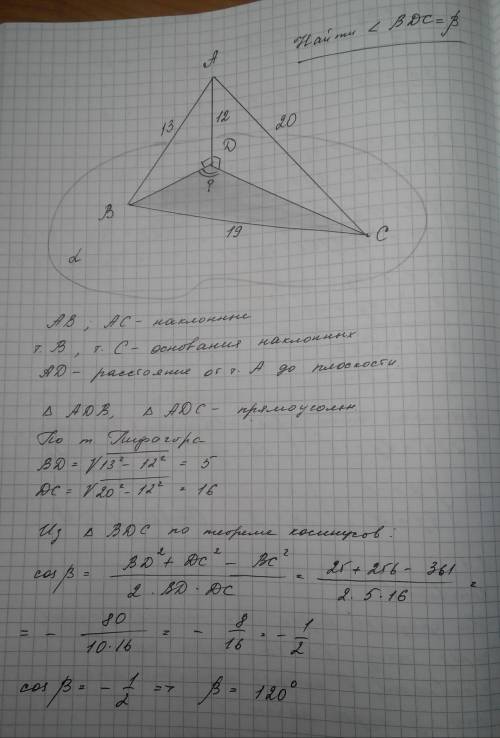 Найти ∠ BDC = β
A
13
12
20
D
?
B
19
C
α
AB ; AC - наклонные
т. B , т. C - основания наклонных
AD - расстояние от т. A до плоскости
△ ADB, △ ADC - прямоугольн
По т Пифагора
BD = √13² - 12² = 5
DC = √20² - 12² = 16
Из △ BDC по теореме косинусов :
cos β = BD² + DC² - BC² / 2 · BD · DC = 25 + 256 - 361 / 2 · 5 · 16 =
= - 80 / 10·16 = - 8 / 16 = - 1 / 2
cos β = - 1 / 2 => β = 120°